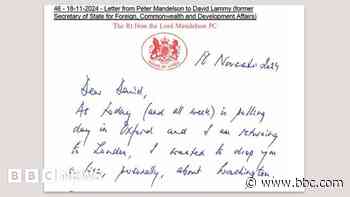 46 - 18-11-2024 - Letter from Peter Mandelson to David Lammy (former
Secretary of State for Foreign, Commonwealth and Development Affairs)
The Rt Hon the Lord Mandelson PC
18 November 2024
Dear David,
As today (and all week) is polling
day in Oxford and I am returning
to London, I wanted to drop you
a line, personally, about Washington.
BBC NEWS
www.bbc.com